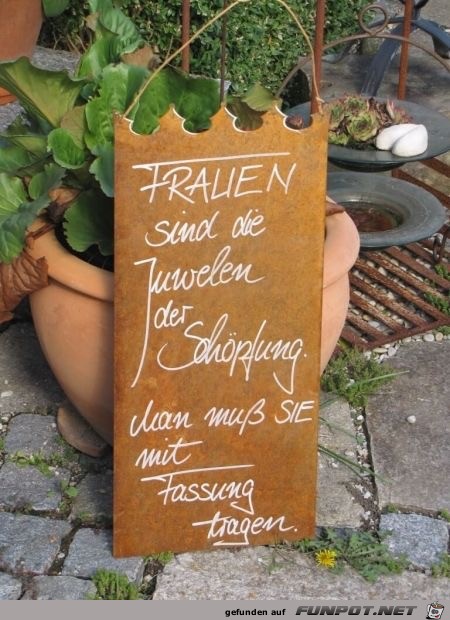 FRAUEN
sind die
Juwelen
der
Schöpfung.
Man muß SIE
mit
Fassung
tragen.
gefunden auf FUNPOT.NET